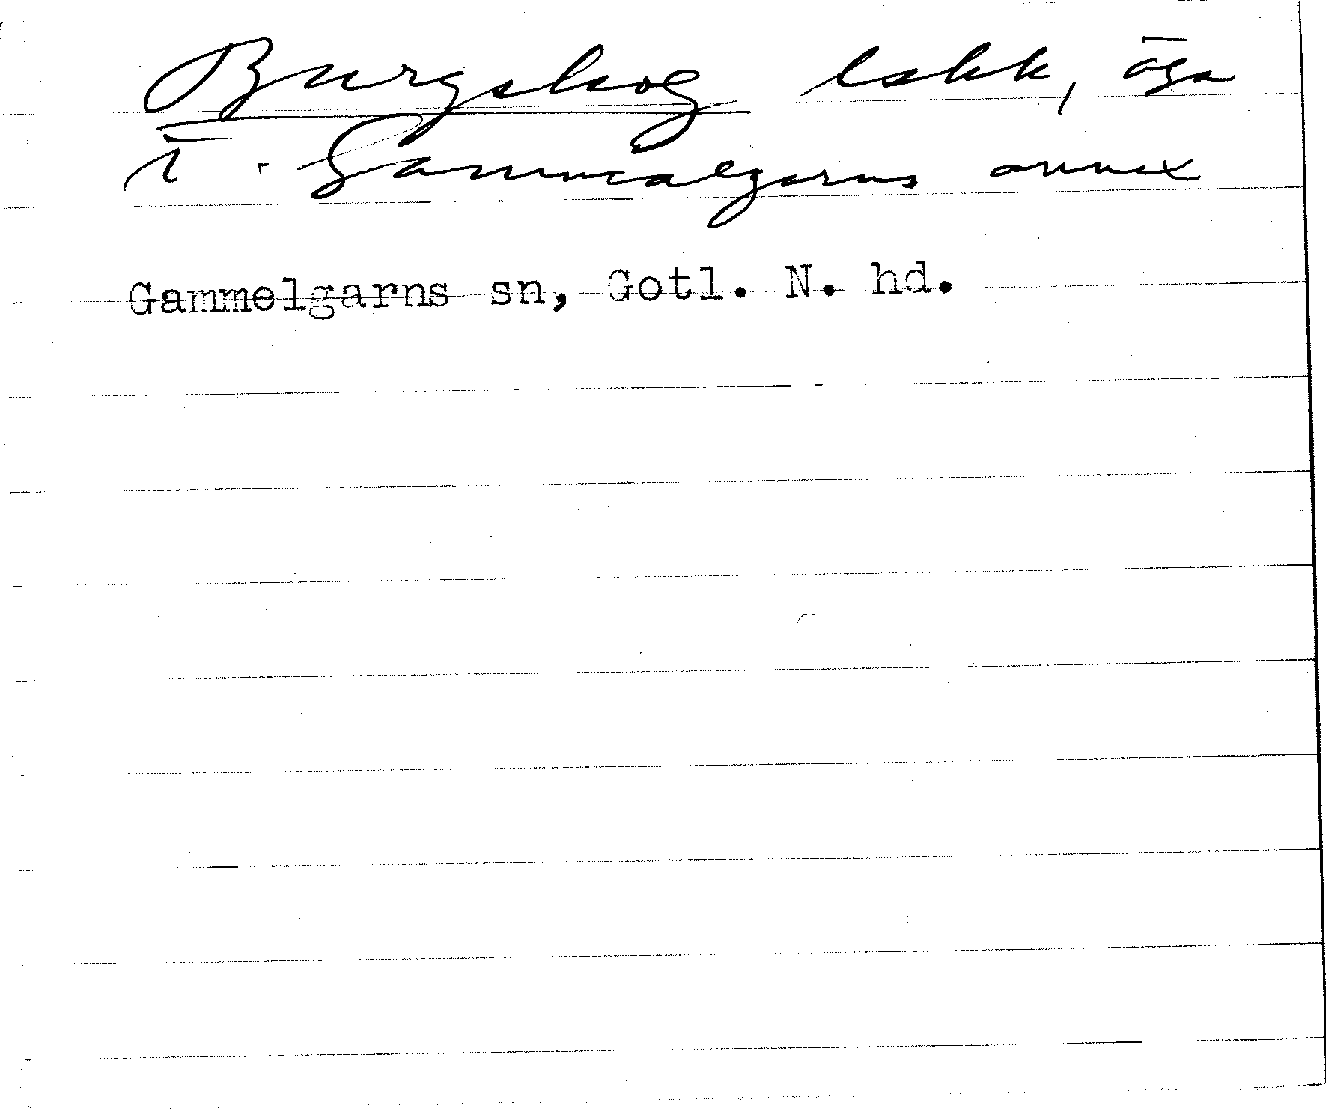 Burgskog lskk, äga
i Gammalgarns annex
Gammelgarns sn, Gotl. N. hd.